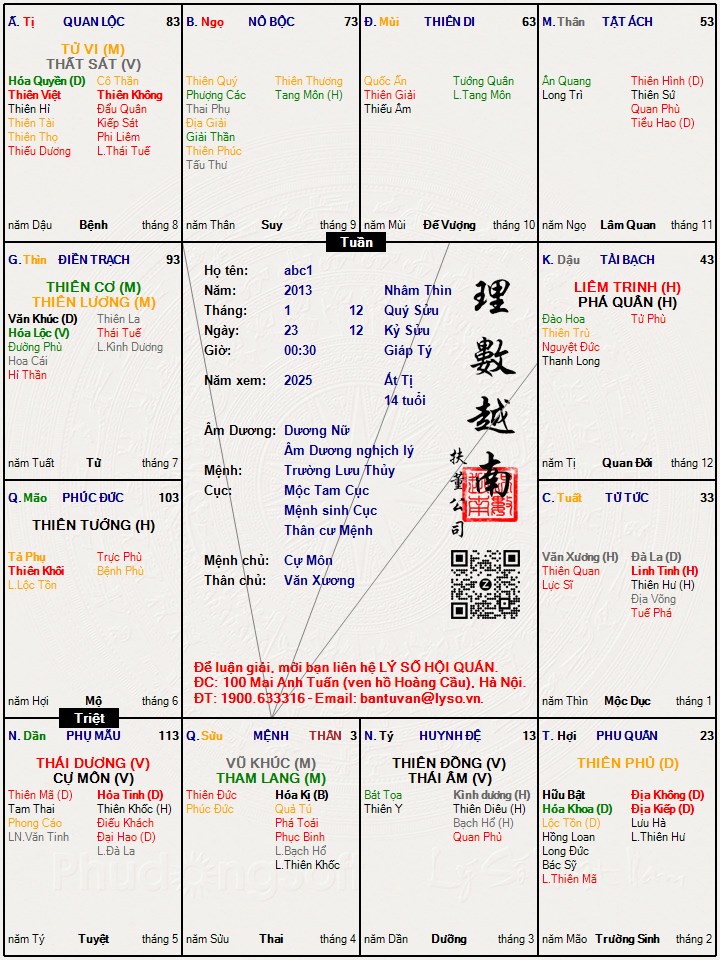 Ấ. Tị QUAN LỘC 83
TỬ VI (M)
THẤT SÁT (V)
Hóa Quyền (D) Cô Thần
Thiên Việt Thiên Không
Thiên Hỉ Đẩu Quân
Thiên Tài Kiếp Sát
Thiên Thọ Phi Liêm
Thiếu Dương L.Thái Tuế
năm Dậu Bệnh tháng 8
B. Ngọ NÔ BỘC 73
Thiên Quý Thiên Thương
Phượng Các Tang Môn (H)
Thai Phụ
Địa Giải
Giải Thần
Thiên Phúc
Tấu Thư
năm Thân Suy tháng 9
Đ. Mùi THIÊN DI 63
Quốc Ấn Tướng Quân
Thiên Giải L.Tang Môn
Thiếu Âm
năm Mùi Đế Vượng tháng 10
M. Thân TẬT ÁCH 53
Ân Quang Thiên Hình (D)
Long Trì Thiên Sứ
Quan Phù
Tiểu Hao (D)
năm Ngọ Lâm Quan tháng 11
Tuần
G. Thìn ĐIỀN TRẠCH 93
THIÊN CƠ (M)
THIÊN LƯƠNG (M)
Văn Khúc (D) Thiên La
Hóa Lộc (V) Thái Tuế
Đường Phù L.Kình Dương
Hoa Cái
Hỉ Thần
năm Tuất Tử tháng 7
Họ tên: abc1
Năm: 2013 Nhâm Thìn
Tháng: 1 12 Quý Sửu
Ngày: 23 12 Kỷ Sửu
Giờ: 00:30 Giáp Tý
Năm xem: 2025 Ất Tị
14 tuổi
Âm Dương: Dương Nữ
Âm Dương nghịch lý
Mệnh: Trường Lưu Thủy
Cục: Mộc Tam Cục
Mệnh sinh Cục
Thân cư Mệnh
Mệnh chủ: Cự Môn
Thân chủ: Văn Xương
理數越南
扶董公司
Để luận giải, mời bạn liên hệ LÝ SỐ HỘI QUÁN.
ĐC: 100 Mai Anh Tuấn (ven hồ Hoàng Cầu), Hà Nội.
ĐT: 1900.633316 - Email: bantuvan@lyso.vn.
K. Dậu TÀI BẠCH 43
LIÊM TRINH (H)
PHÁ QUÂN (H)
Đào Hoa Tử Phù
Thiên Trù
Nguyệt Đức
Thanh Long
năm Tị Quan Đới tháng 12
Q. Mão PHÚC ĐỨC 103
THIÊN TƯỚNG (H)
Tả Phụ Trực Phù
Thiên Khôi Bệnh Phù
L.Lộc Tồn
năm Hợi Mộ tháng 6
C. Tuất TỬ TỨC 33
Văn Xương (H) Đà La (D)
Thiên Quan Linh Tinh (H)
Lực Sĩ Thiên Hư (H)
Địa Võng
Tuế Phá
năm Thìn Mộc Dục tháng 1
Triệt
N. Dần PHỤ MẪU 113
THÁI DƯƠNG (V)
CỰ MÔN (V)
Thiên Mã (D) Hỏa Tinh (D)
Tam Thai Thiên Khốc (H)
Phong Cáo Điếu Khách
LN.Văn Tinh Đại Hao (D)
L.Đà La
năm Tý Tuyệt tháng 5
Q. Sửu MỆNH THÂN 3
VŨ KHÚC (M)
THAM LANG (M)
Thiên Đức Hóa Kị (B)
Phúc Đức Quả Tú
Phá Toái
Phục Binh
L.Bạch Hổ
L.Thiên Khốc
năm Sửu Thai tháng 4
N. Tý HUYNH ĐỆ 13
THIÊN ĐỒNG (V)
THÁI ÂM (V)
Bát Tọa Kình dương (H)
Thiên Y Thiên Diêu (H)
Bạch Hổ (H)
Quan Phủ
năm Dần Dưỡng tháng 3
T. Hợi PHU QUÂN 23
THIÊN PHỦ (D)
Hữu Bật Địa Không (D)
Hóa Khoa (D) Địa Kiếp (D)
Lộc Tồn (D) Lưu Hà
Hồng Loan L.Thiên Hư
Long Đức
Bác Sỹ
L.Thiên Mã
năm Mão Trường Sinh tháng 2